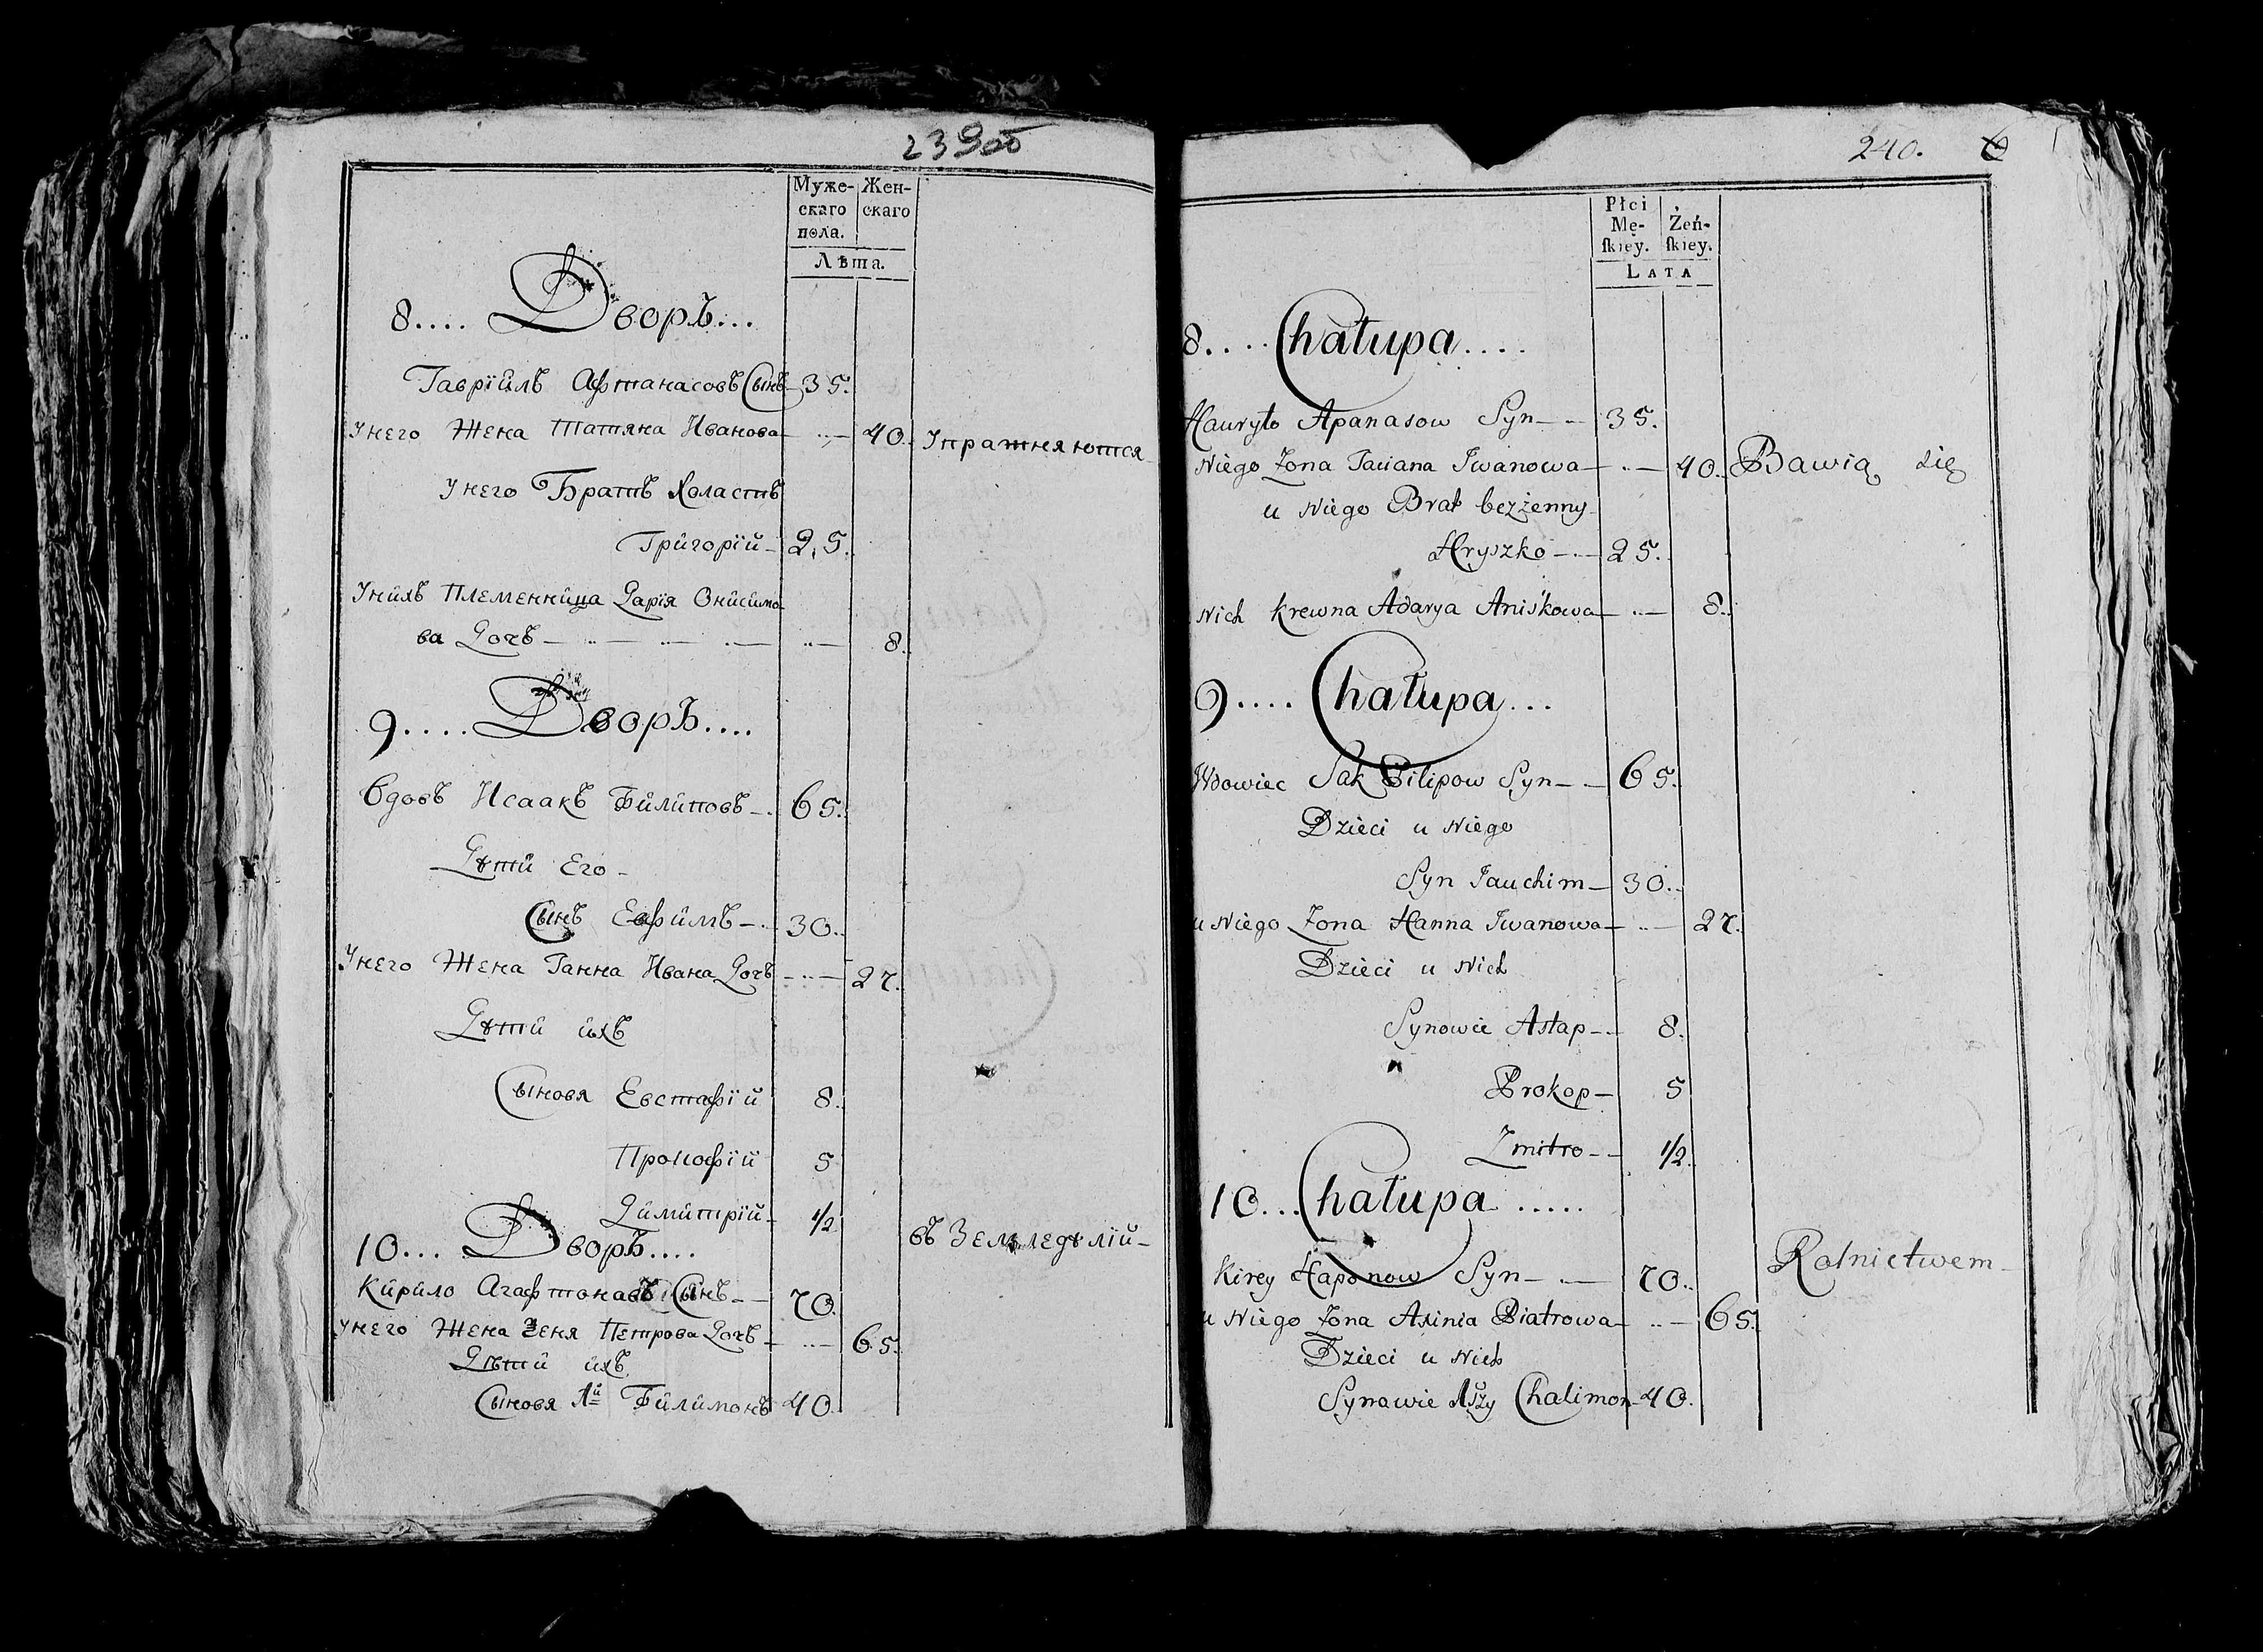 239об
Муже- Жен-
скаго скаго
пола.
Лѣта.
8.... Дворъ...
Гаврійлъ Афтанасовъ Сынъ 35.
Унего Жена Татяна Иванова 40. Упражняются
Унего Братъ Холастъ
Григорій 25.
Унихъ Племенница Дарія Онисимо
ва Дочъ 8.
9.... Дворъ....
Вдовъ Исаакъ Филиповъ 65.
Дѣти Его
Сынъ Евфимъ 30.
Унего Жена Ганна Ивана Дочъ 27.
Дѣти ихъ
Сыновя Евстафій 8.
Прокофій 5
Димитрій 1/2
10... Дворъ.... въ Земледѣлій
Кирило Агафтоновъ Сынъ 70.
Унего Жена Петрова Дочъ 65.
Дѣти ихъ
Сыновя 1й Филимонъ 40.
240. 6
Płci
Mę- Żeń-
ſkiey. ſkiey.
LATA
8.... Chałupa....
Hauryło Apanasow Syn 35.
Niego Zona Taciana Iwanowa 40. Bawią się
u Niego Brat bezżenny
Hryszko 25.
Nich Krewna Adarya Aniśkowa 8.
9.... Chałupa...
Wdowiec Sak Filipow Syn 65.
Dzieci u Niego
Syn Jauchim 30.
u Niego Zona Hanna Iwanowa 27.
Dzieci u Nich
Synowie Astap 8.
Prokop 5
Zmitro 1/2.
10... Chałupa..... Rolnictwem
Kirey Haponow Syn 70.
u Niego Zona Axinia Piatrowa 65.
Dzieci u Nich
Synowie 1szy Chalimon 40.